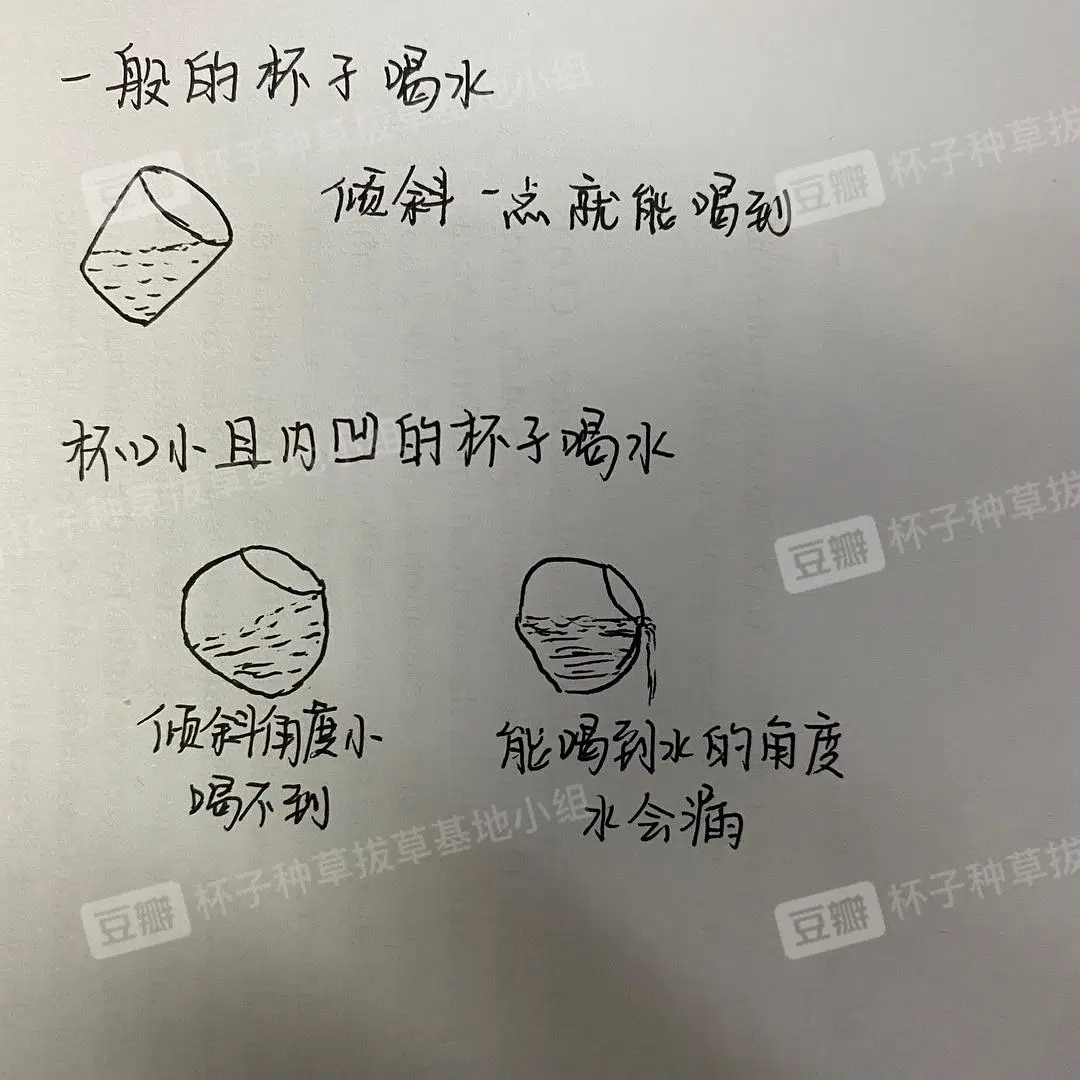 一般的杯子喝水
倾斜一点就能喝到
杯口小且内凹的杯子喝水
倾斜角度小
喝不到
能喝到水的角度
水会漏
豆瓣 杯子种草拔草基地小组
豆瓣 杯子种草拔
杯子种草拔草基地小组
豆瓣 杯子种草拔
豆瓣 杯子种草拔草基地小组
豆瓣 杯子种草拔